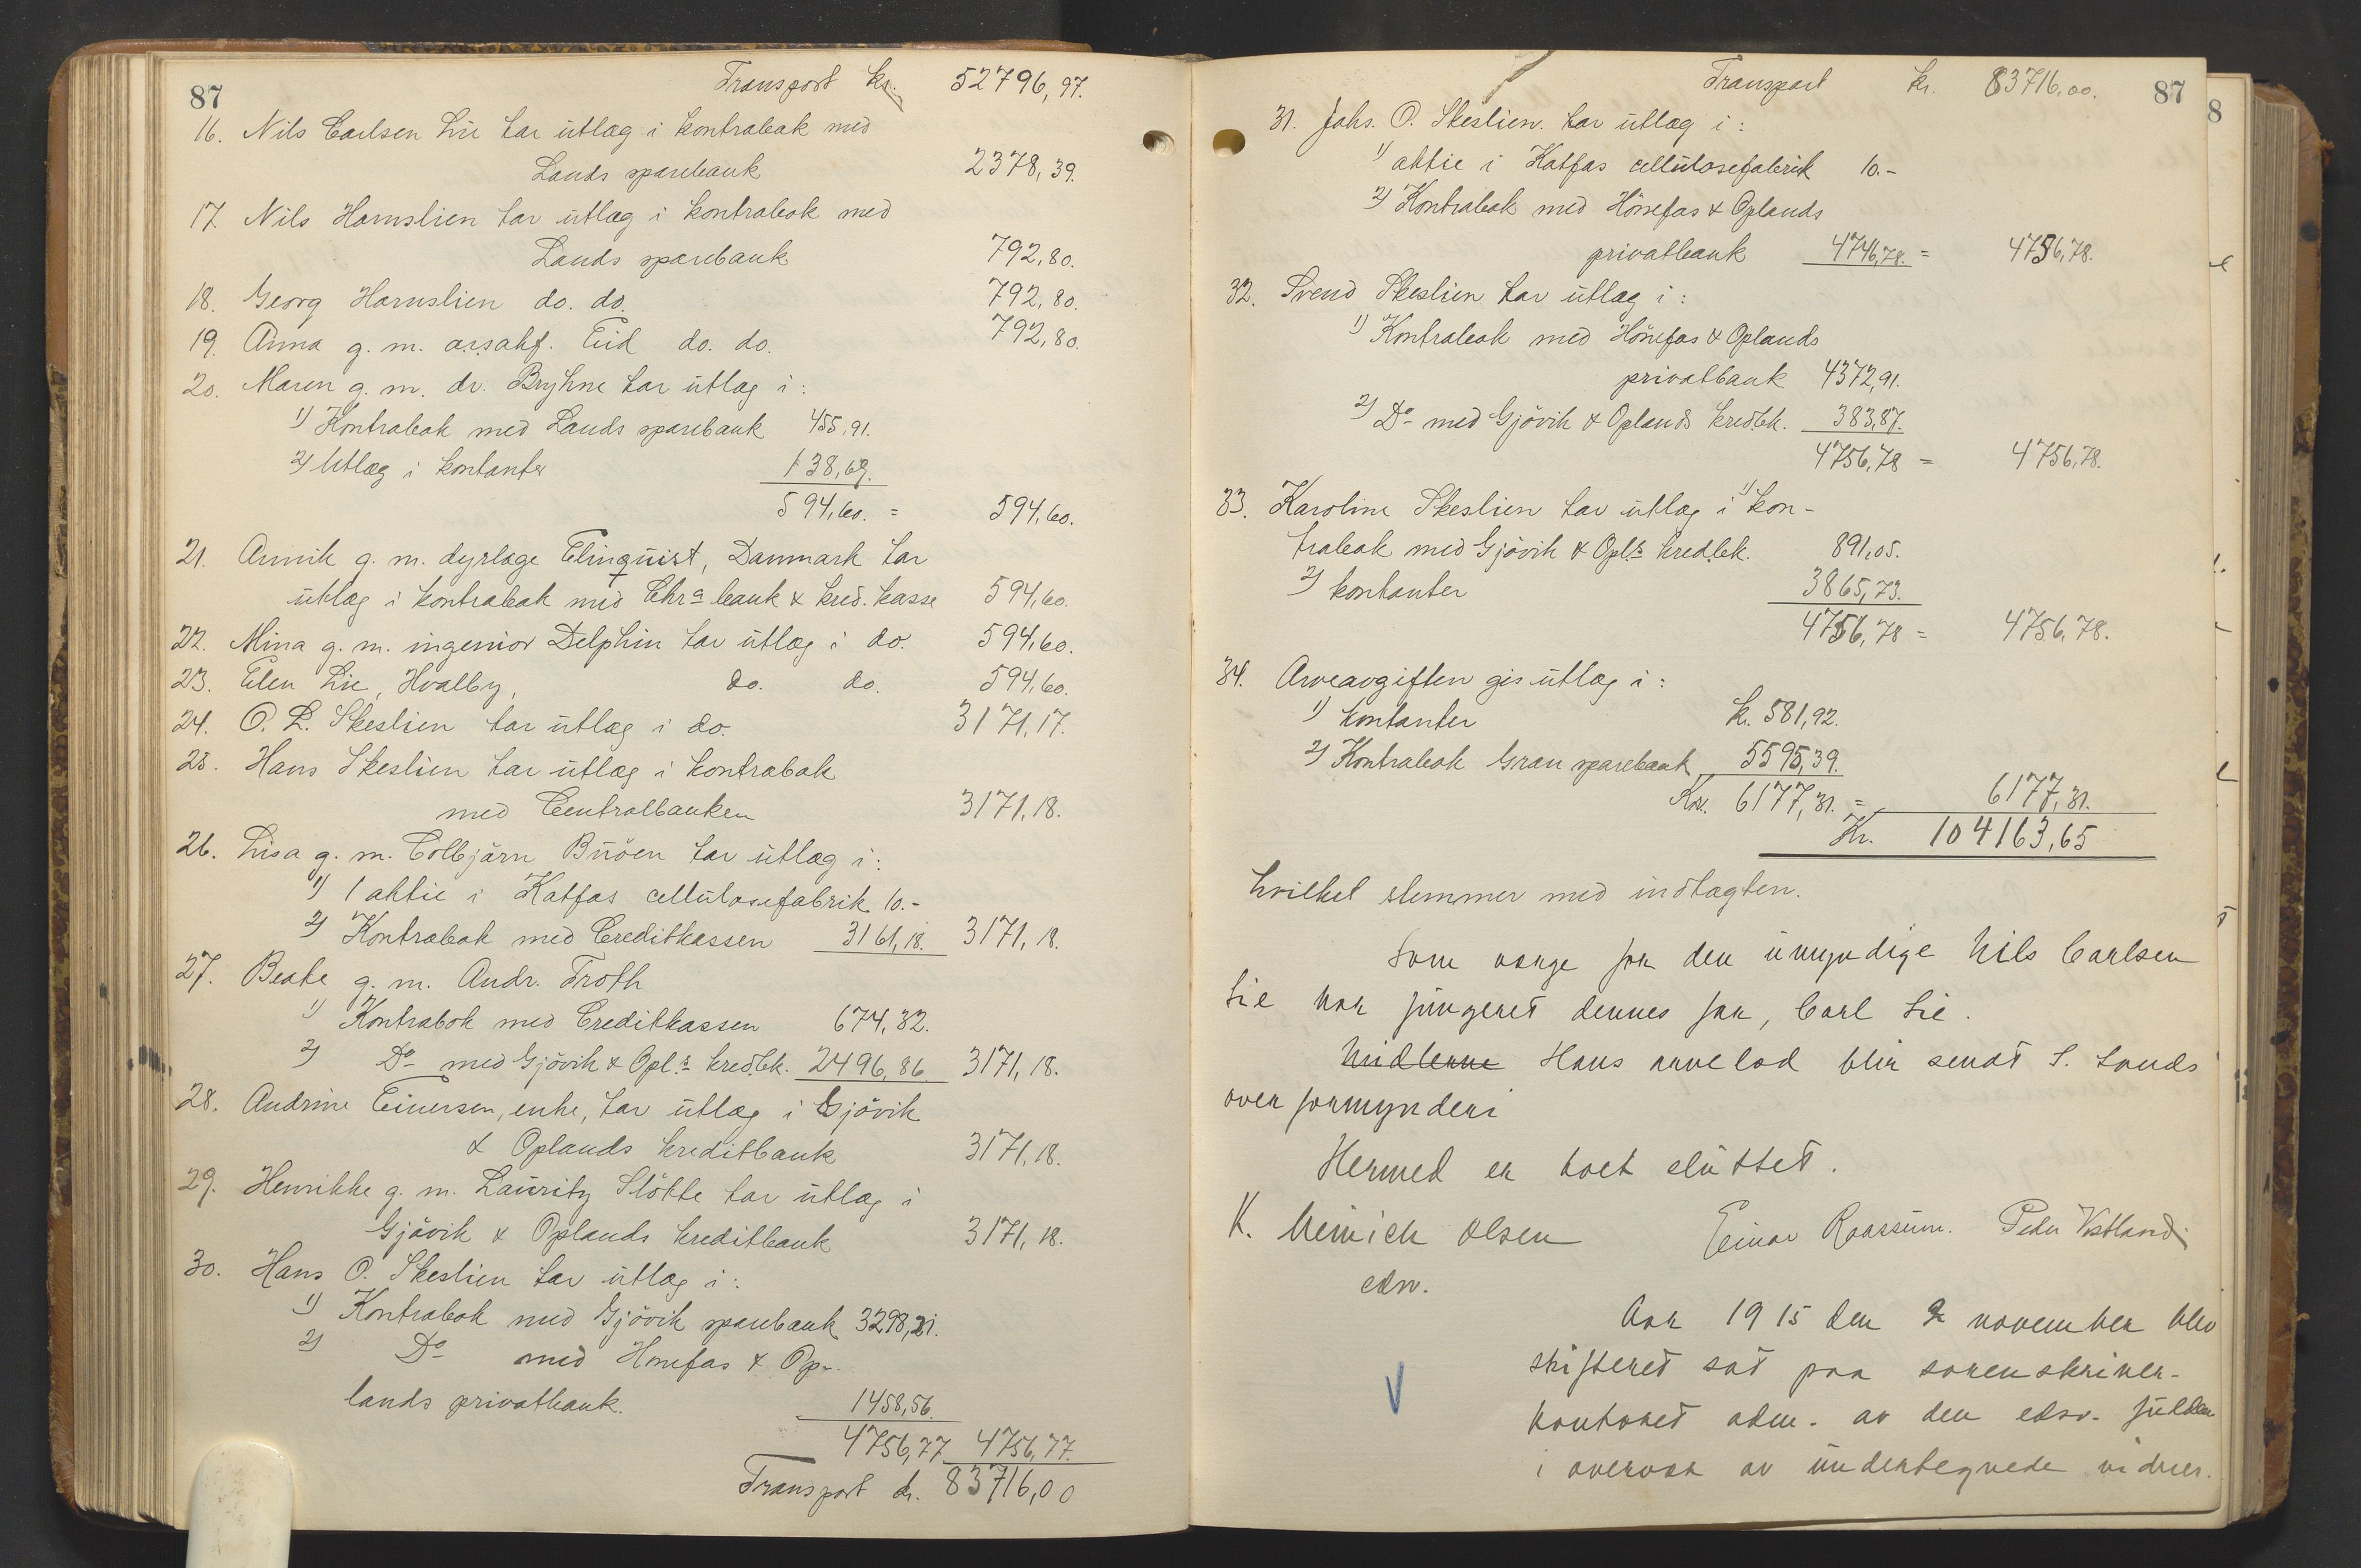 87
Transport kr. 52796,97.
16. Nils Carlsen Lie tar utlæg i kontrabok med
Lands sparebank 2378,39.
17. Nils Harnslien tar utlæg i kontrabok med
Lands sparebank 792,80.
18. Georg Harnslien do. do. 792,80.
19. Anna g. m. assakf. Eid do. do. 792,80.
20. Maren g. m. dr. Bryhne tar utlæg i:
1) Kontrabok med Lands sparebank 455,91.
2) Utlæg i kontanter 138,69.
594,60. = 594,60.
21. Annik g. m. dyrlæge Elinquist, Danmark tar
utlæg i kontrabok med Chra bank & kred. kasse 594,60.
22. Mina g. m. ingeniør Delphin tar utlæg i do. 594,60.
23. Elen Lie, Hvalby, do. do. 594,60.
24. O. L. Skeslien tar utlæg i do. 3171,17.
25. Hans Skeslien tar utlæg i kontrabok
med Centralbanken 3171,18.
26. Lisa g. m. Tolbjørn Buöen tar utlæg i:
1) 1 aktie i Katfos cellulosefabrik 10.-
2) Kontrabok med Creditkassen 3161,18. 3171,18.
27. Beate g. m. Andr. Troth
1) Kontrabok med Creditkassen 674,32.
2) Do med Gjövik & Opl.s kredbk. 2496,86 3171,18.
28. Andrine Einersen, enke, tar utlæg i Gjövik
& Oplands kreditbank 3171,18.
29. Henrikke g. m. Lauritz Slötte tar utlæg i
Gjövik & Oplands kreditbank 3171,18.
30. Hans O. Skeslien tar utlæg i:
1) Kontrabok med Gjövik sparebank 3298,21.
2) Do med Hønefos & Op-
lands privatbank. 1458,56.
4756,77 4756,77.
Transport kr. 83716,00
Transport kr. 83716,00. 87
8
31. Johs. O. Skeslien tar utlæg i:
1) aktie i Katfos cellulosefabrik 10.-
2) Kontrabok med Hönefos & Oplands
privatbank 4746,78. = 4756,78.
32. Svend Skeslien tar utlæg i:
1) Kontrabok med Hönefos & Oplands
privatbank 4372,91.
2) Do med Gjövik & Oplands kredbk. 383,87.
4756,78 = 4756,78.
33. Karoline Skeslien tar utlæg i 1) kon-
trabok med Gjövik & Opl.s kredbk. 891,05.
2) kontanter 3865,73.
4756,78 = 4756,78.
34. Arveavgiften gis utlæg i:
1) kontanter k. 581,92.
2) Kontrabok Gran sparebank 5595,39.
Kr. 6177,31. = 6177,31.
Kr. 104163,65
hvilket stemmer med indtægten.
Som værge for den umyndige Nils Carlsen
Lie har fungeret dennes far, Carl Lie.
Midlerne Hans arvelod blir sendt S. Lands
overformynderi
Hermed er boet sluttet.
K. Meinich Olsen Einar Raassum. Peder Vestland
edsv.
Aar 1915 den 2 november blev
skifteret sat paa sorenskriver-
kontoret adm. av den edsv. fuldm
i overvær av undertegnede vidner.